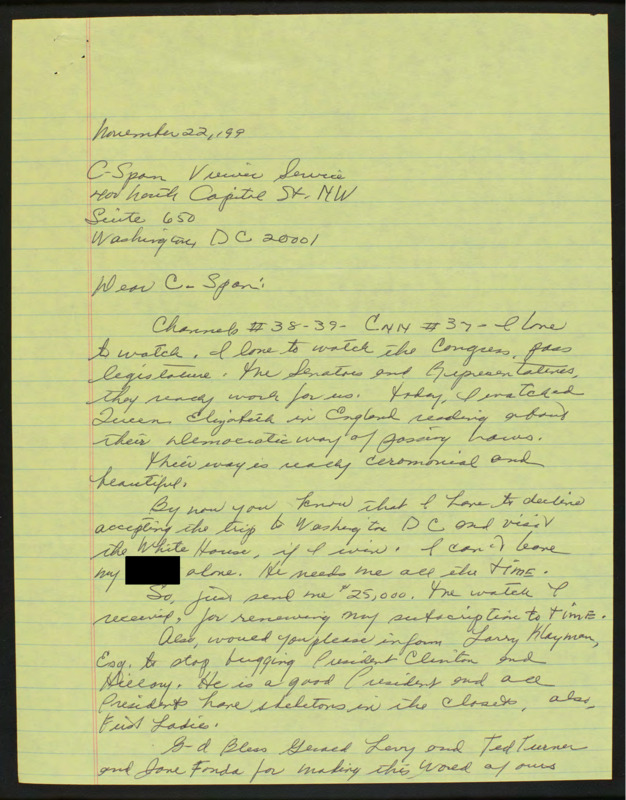 November 22, 199
C-Span Viewer Service
400 North Capitol St. NW
Suite 650
Washington, DC 20001
Dear C-Span:
Channels #38-39- CNN #37- I love
to watch. I love to watch the Congress, pass
legislature. The Senators and Representatives,
they really work for us. Today, I watched
Queen Elizabeth in England reading about
their Democratic way of passing Laws.
Their way is really ceremonial and
beautiful.
By now you know that I have to decline
accepting the trip to Washington DC and visit
the White House, if I win. I can't leave
my alone. He needs me all the TIME.
So, just send me $25,000. The watch I
received, for renewing my subscription to TIME.
Also, would you please inform Larry Klayman,
Esq. to stop bugging President Clinton and
Hillary. He is a good President and all
Presidents have skeletons in the closets, also,
First Ladies.
G-d Bless Gerald Levy and Ted Turner
and Jane Fonda for making this World of ours